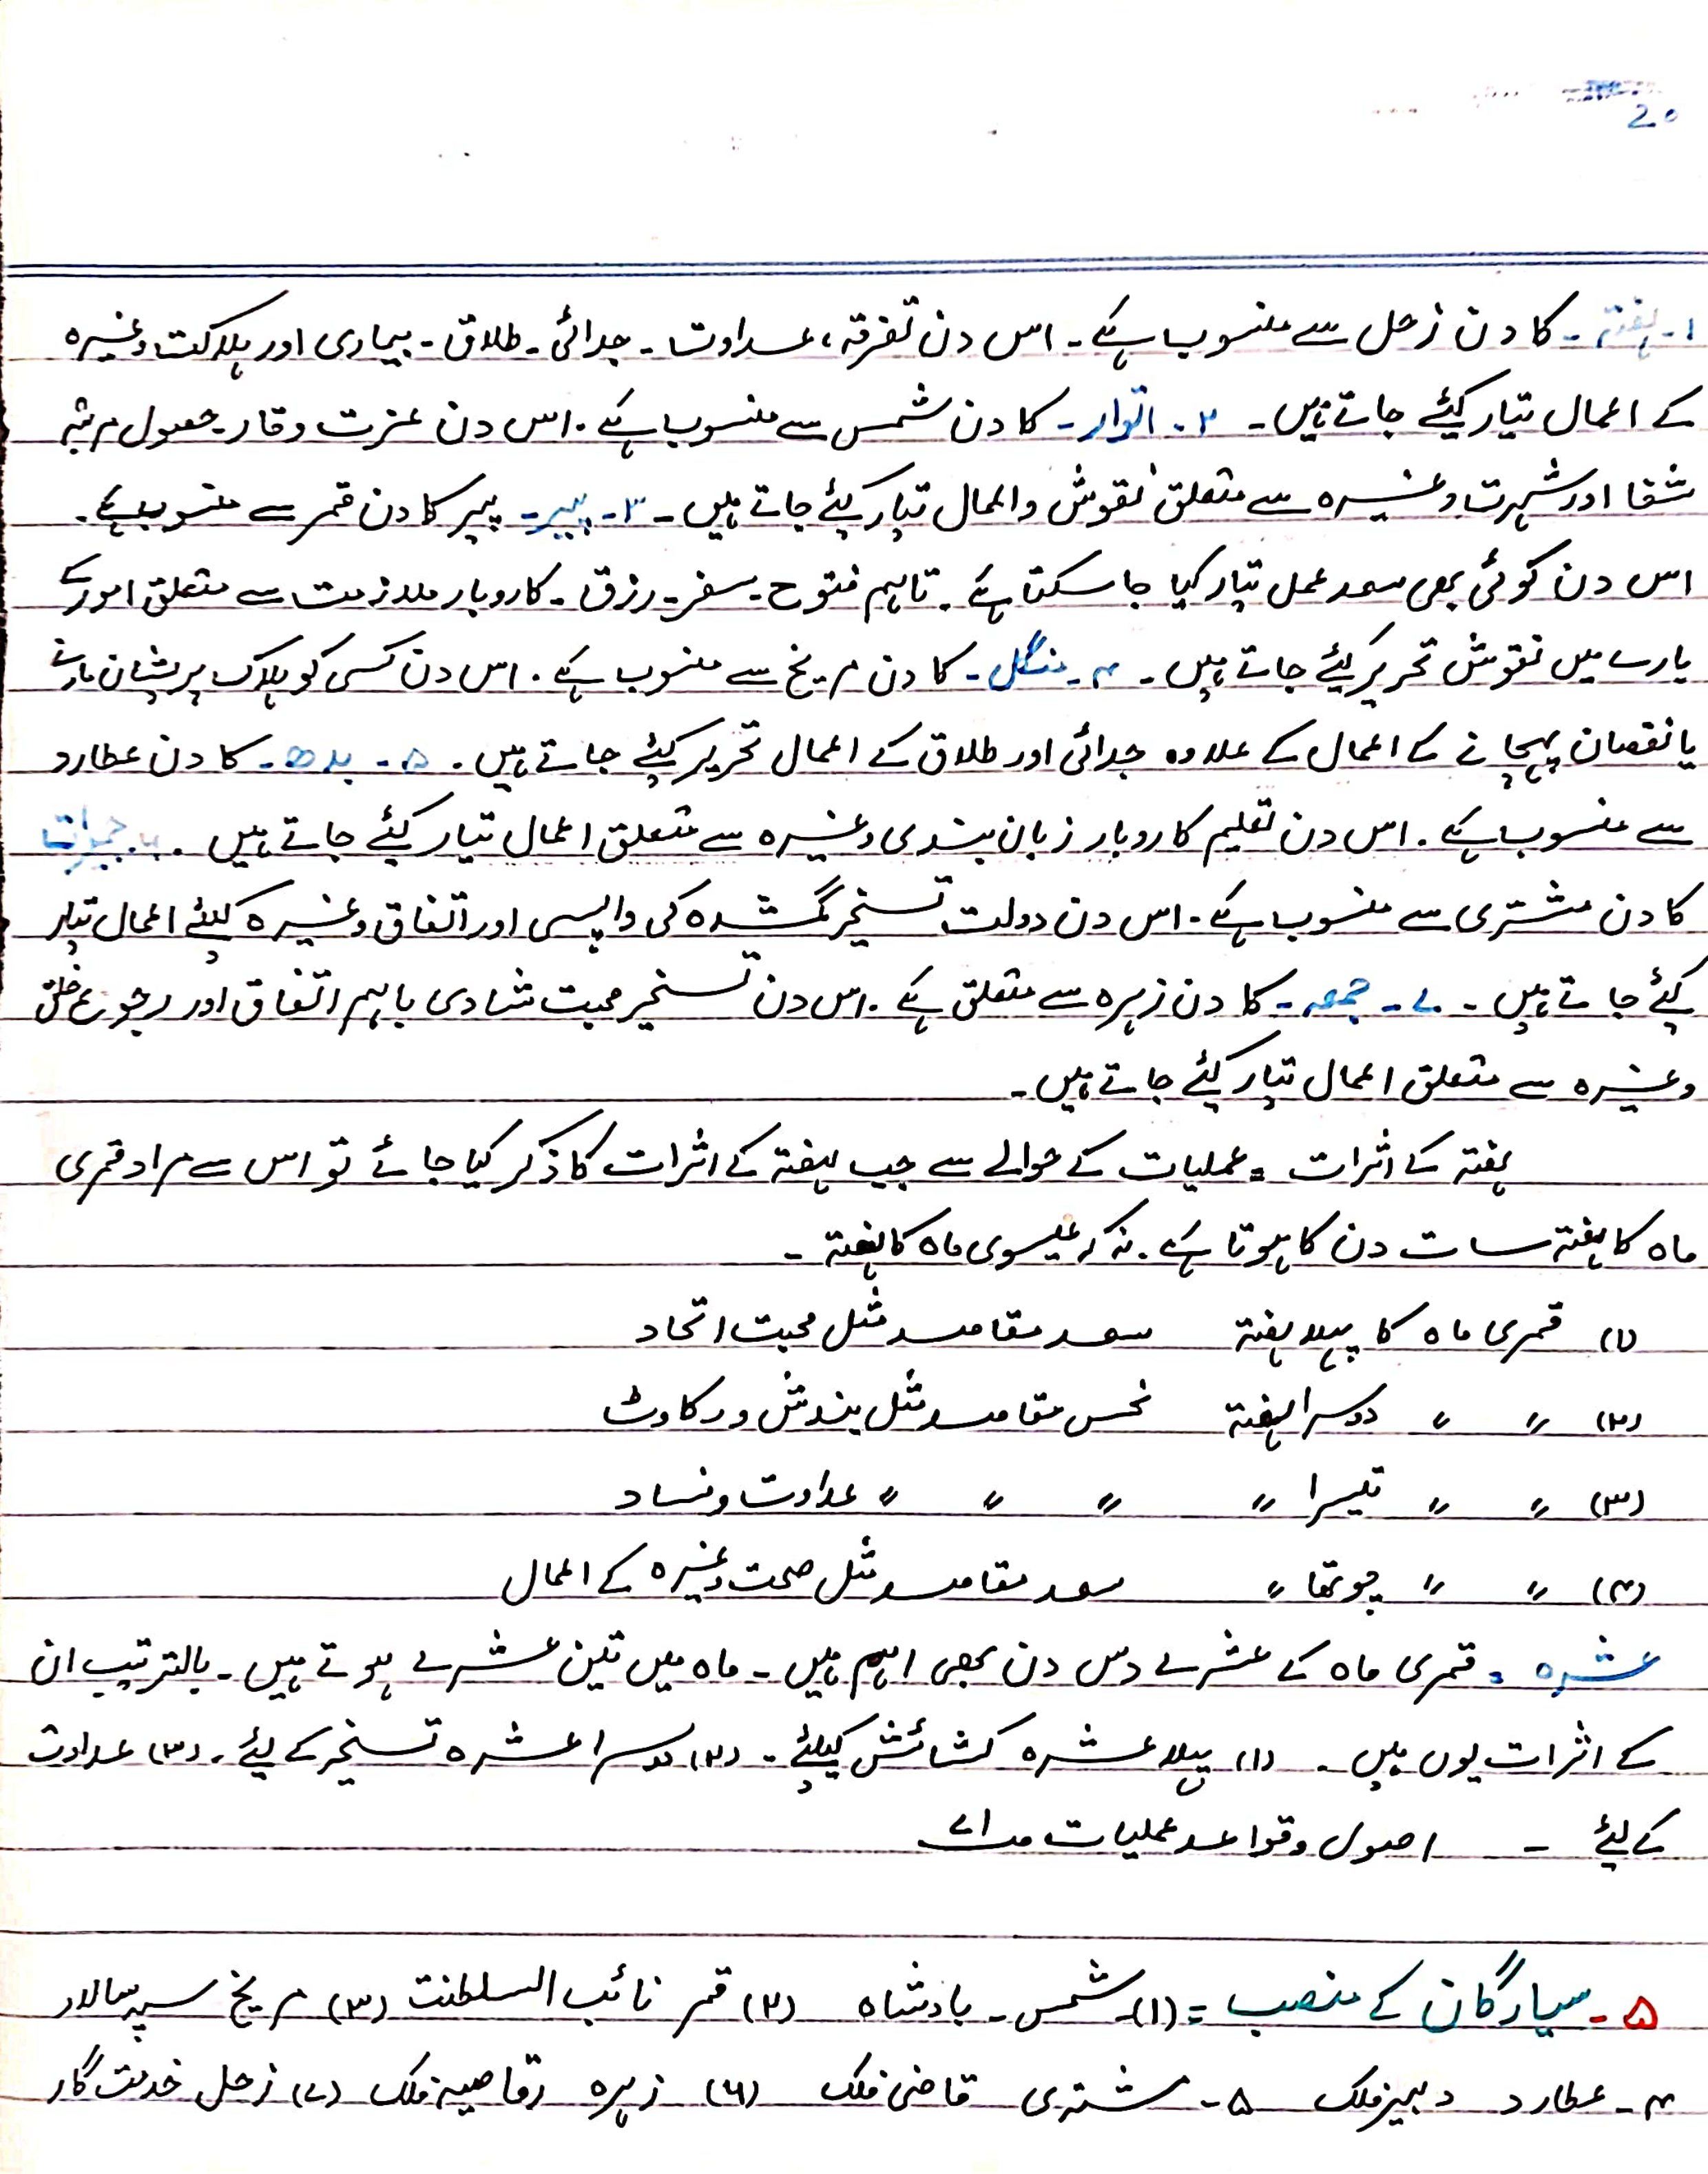 20
۱۔ ہفتہ ۔ کا دن زحل سے منسوب ہے ۔ اس دن تفرقہ، عداوت ۔ جدائی ۔ طلاق ۔ بیماری اور ہلاکت وغیرہ
کے اعمال تیار کیئے جاتے ہیں ۔ ۲۔ اتوار ۔ کا دن شمس سے منسوب ہے ۔ اس دن عزت وقار ۔ حصول مرتبہ
شفا اور شہرت وغیرہ سے متعلق نقوش و اعمال تیار کیئے جاتے ہیں ۔ ۳۔ پیر ۔ پیر کا دن قمر سے منسوب ہے ۔
اس دن کوئی بھی سعد عمل تیار کیا جا سکتا ہے ۔ تاہم فتوح ۔ سفر ۔ رزق ۔ کاروبار ملازمت سے متعلق امور کے
بارے میں نقوش تحریر کیئے جاتے ہیں ۔ ۴۔ منگل ۔ کا دن مریخ سے منسوب ہے ۔ اس دن کسی کو ہلاک پریشان مارنے
یا نقصان پہچانے کے اعمال کے علاوہ جدائی اور طلاق کے اعمال تحریر کیئے جاتے ہیں ۔ ۵ ۔ بدھ ۔ کا دن عطارد
سے منسوب ہے ۔ اس دن تعلیم کاروبار زبان بندی وغیرہ سے متعلق اعمال تیار کیئے جاتے ہیں ۔ ۶۔ جمعرات
کا دن مشتری سے منسوب ہے ۔ اس دن دولت تسخیر گمشدہ کی واپسی اور اتفاق وغیرہ کیلئے اعمال تیار
کیئے جاتے ہیں ۔ ۷ ۔ جمعہ ۔ کا دن زہرہ سے متعلق ہے ۔ اس دن تسخیر محبت شادی باہم اتفاق اور رجوع خلق
وغیرہ سے متعلق اعمال تیار کیئے جاتے ہیں ۔
ہفتہ کے اثرات = عملیات کے حوالے سے جب ہفتہ کے اثرات کا ذکر کیا جائے تو اس سے مراد قمری
ماہ کا ہفتہ سات دن کا ہوتا ہے ۔ نہ کہ عیسوی ماہ کا ہفتہ ۔
(۱) قمری ماہ کا پہلا ہفتہ سعد مقاصد مثل محبت اتحاد
(۲) 〃 〃 دوسرا ہفتہ نحس مقاصد مثل بندش و رکاوٹ
(۳) 〃 〃 تیسرا 〃 〃 〃 〃 عداوت و فساد
(۴) 〃 〃 چوتھا 〃 سعد مقاصد مثل صحت وغیرہ کے اعمال
عشرہ = قمری ماہ کے عشرے دس دن بھی اہم ہیں ۔ ماہ میں تین عشرے ہوتے ہیں ۔ بالترتیب ان
کے اثرات یوں ہیں ۔ (۱) پہلا عشرہ کشائش کیلئے ۔ (۲) دوسرا عشرہ تسخیر کے لیئے ۔ (۳) عداوت
کے لیئے ۔ اصول و قواعد عملیات
۵ ۔ سیارگان کے منصب = (۱) ۔ شمس ۔ بادشاہ (۲) قمر نائب السلطنت (۳) مریخ سپہ سالار
۴ ۔ عطارد دبیر فلک ۵ ۔ مشتری قاضی فلک (۶) زہرہ رقاصہ فلک (۷) زحل خدمت گار